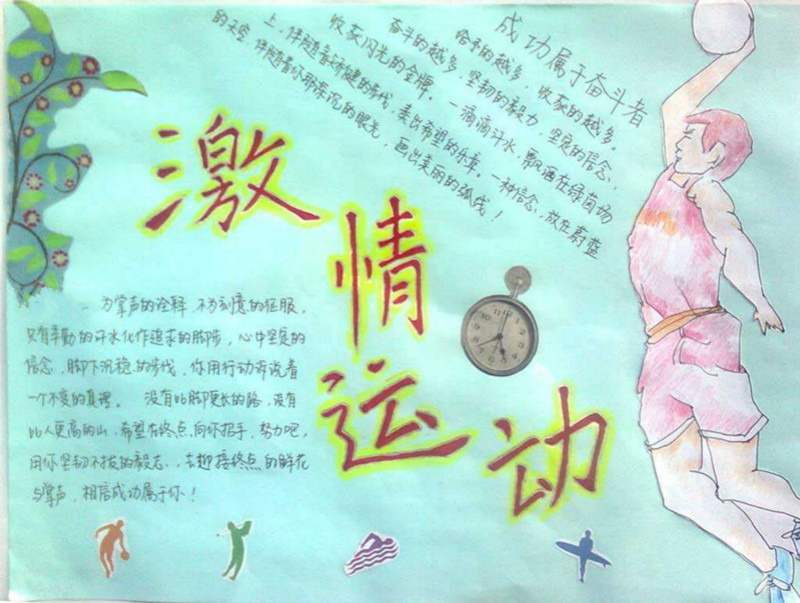 成功属于奋斗者
给予的越多,收获的越多。
奋斗的越多,坚韧的毅力,坚定的信念,
收获闪光的金牌。一滴滴汗水,飘洒在绿茵场
上,伴随着矫健的步伐,奏出希望的乐章。一种信念,放在蔚蓝
的天空,伴随着你那深沉的眼光,画出美丽的弧线!
激情运动
为掌声的诠释,不为刻意的征服。
只有辛勤的汗水化作追求的脚步,心中坚定的
信念,脚下沉稳的步伐,你用行动诉说着
一个不变的真理。没有比脚更长的路,没有
比人更高的山,希望在终点向你招手,努力吧,
用你坚韧不拔的毅志,去迎接终点的鲜花
与掌声,相信成功属于你!